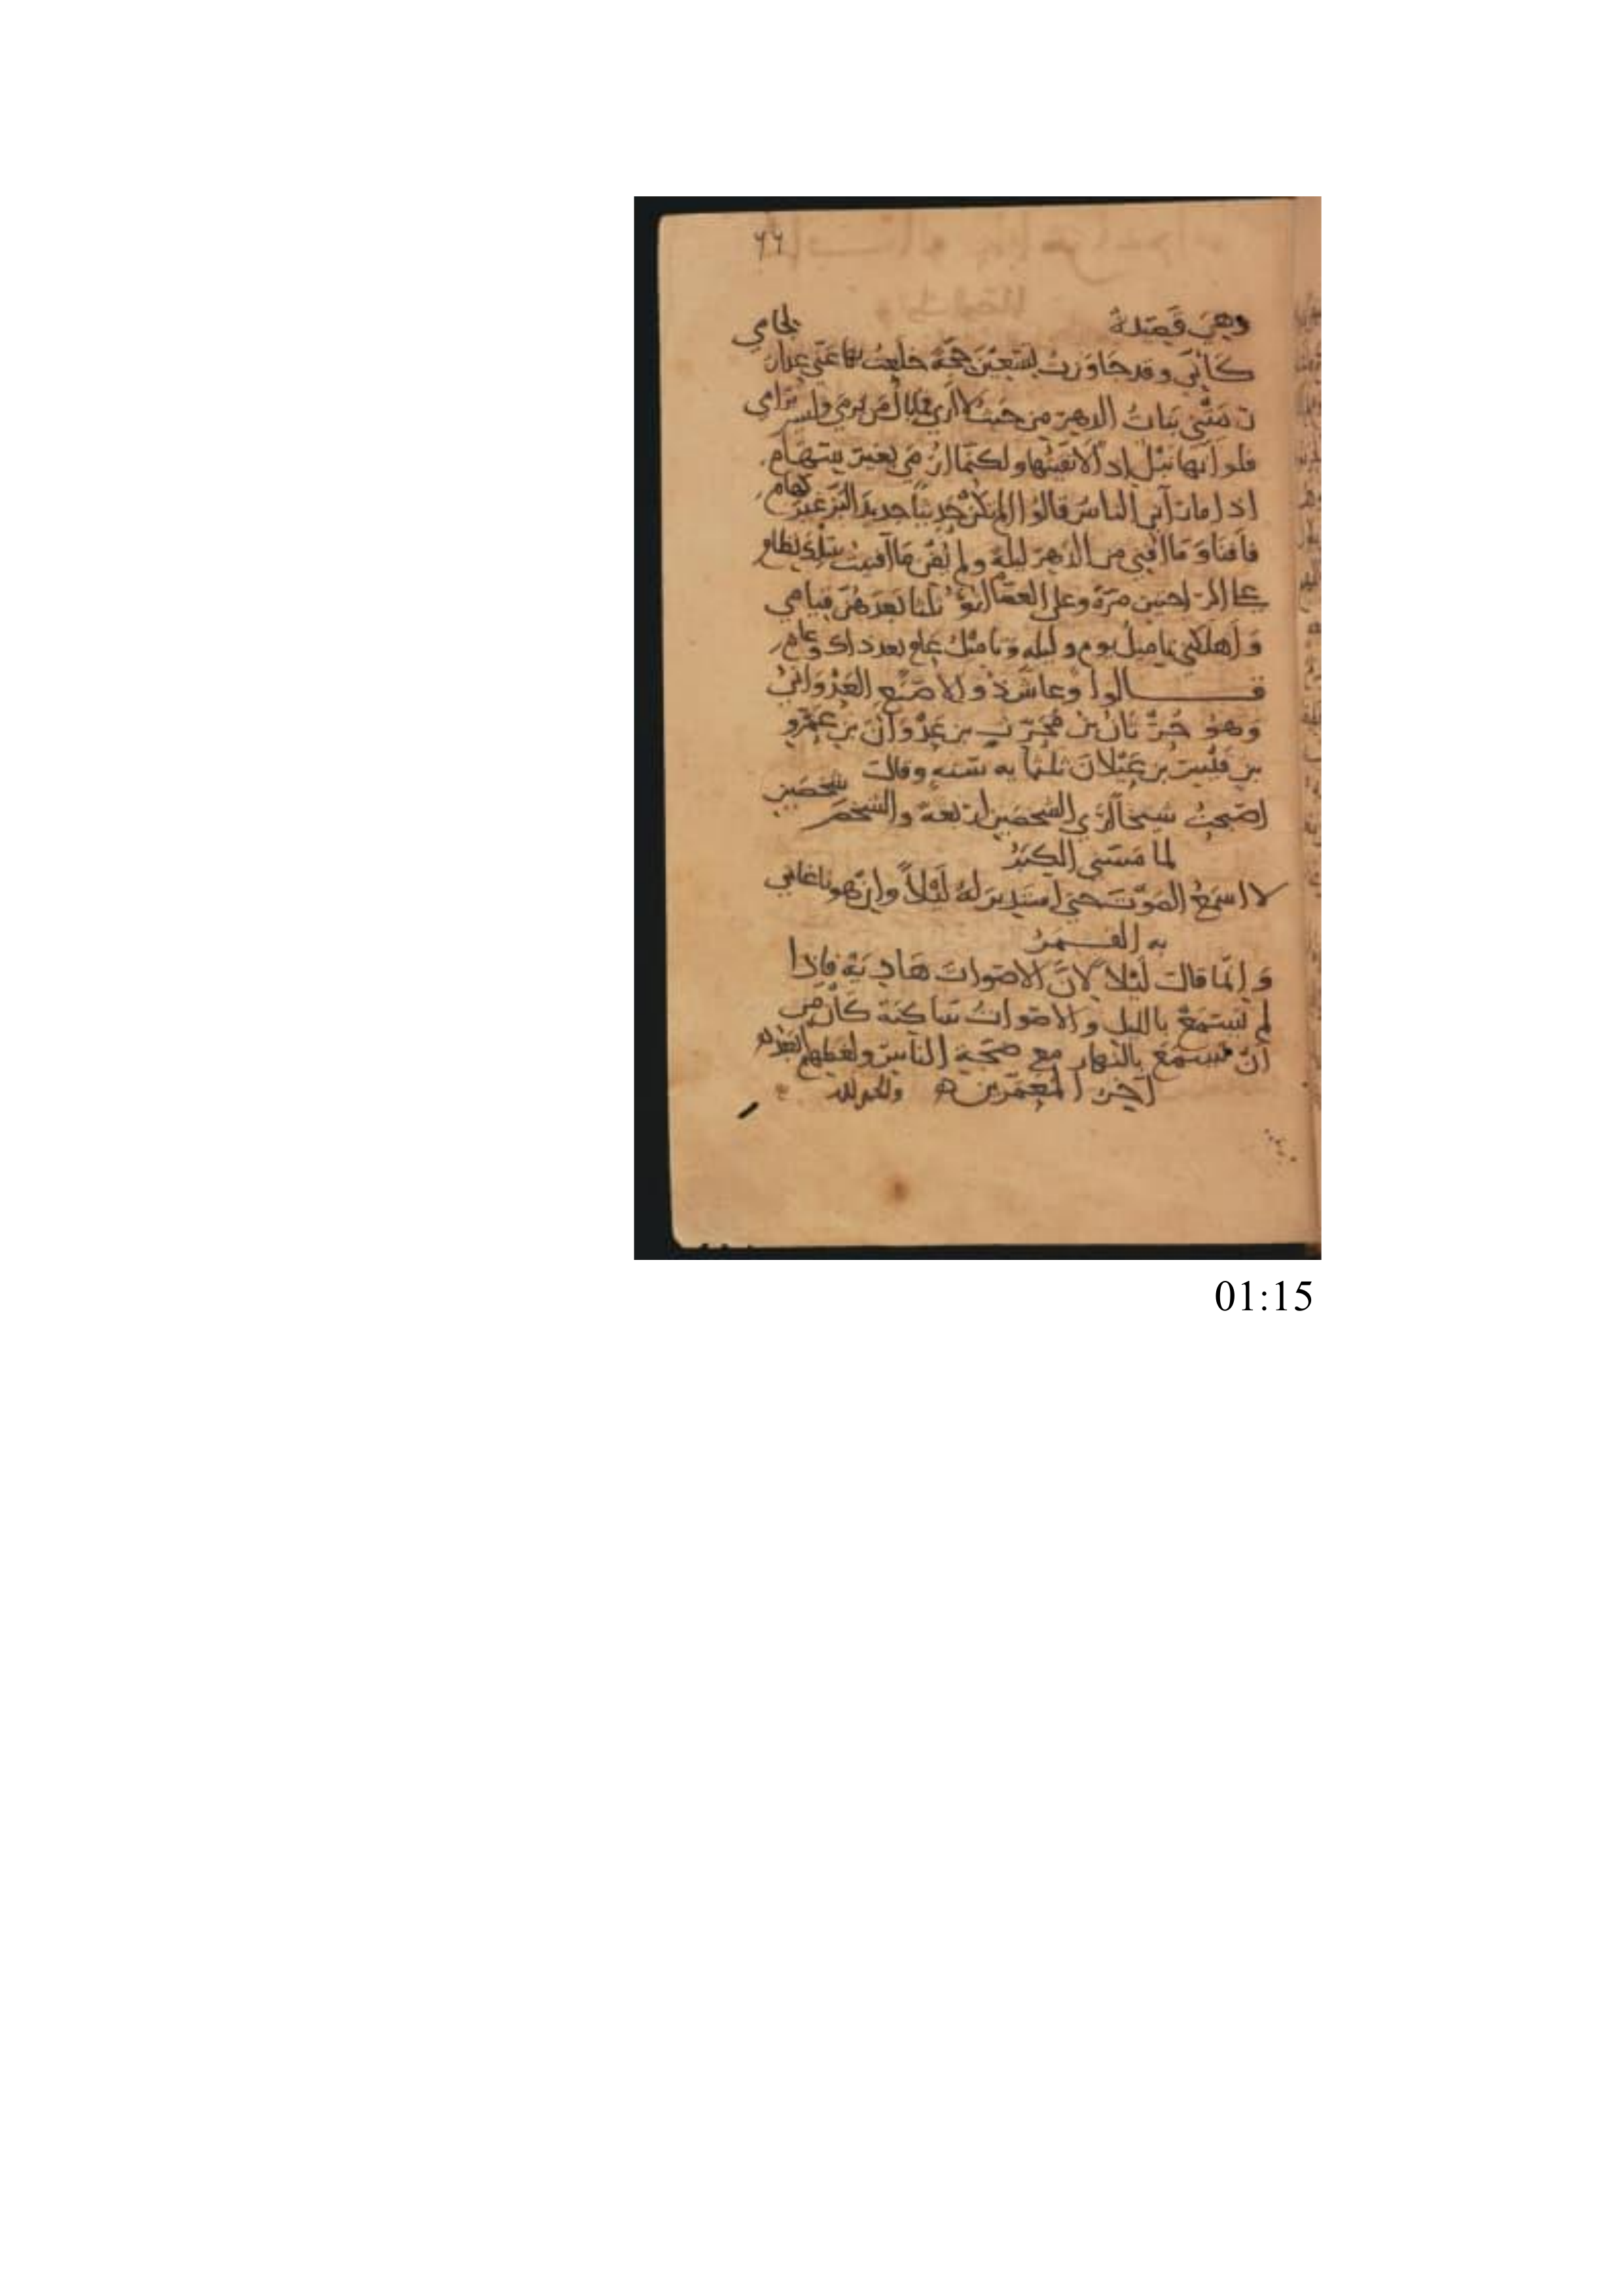 ٦٦
وهيَ قَصِيدَةٌ
كَأَنِّي وقد جَاوَزتُ تسْعينَ حِجّةً خلعتُ بها عنّي عِذارَ لجامي
رَمَتْني بَناتُ الدهرِ من حَيثُ لا أرى فكيف مَن يُرمى وليس بِرَامي
فلو أنّها نَبْلٌ إذاً لاتّقَيْتُها ولكنّما أُرْمى بغيرِ سِهَامِ
إذا ما رآني الناسُ قالوا ألم تكنْ حَدِيثاً جديدَ البَزِّ غيرَ كَهامِ
فأفنَا وَمَا أُفني من الدّهرِ ليلةً ولم يُفْنِ مَا أفنيتُ سِلْكَ نظامِ
على الراحتين مرّةً وعلى العصا أنوءُ ثلثا بَعدَهُنَّ قيامي
وَأهلكني تاميلُ يومٍ وليلهٍ وَتاميلُ عامٍ بعد ذاك وعامِ
قالوا وعاشَ ذو الاصْبَعِ العَدْوَانيُّ
وهوُ حُرْثَانُ بنُ مُحَرِّثِ بن عَدْوَانَ بنِ عَمْرو
بنِ قَيْسِ بن عَيْلانَ ثلثمايه سَنهٍ وقالَ
اصْبَحْتُ شيخاً أرَى الشخصَينِ أربعةً والشخصَ شخصَينِ
لما مَسّني الكِبَرُ
لا اسمَعُ الصَوْتَ حَتى استَدِيرَ لهُ لَيْلاً وإن هو ناغاني
به القمرُ
وَإنّما قالَ لَيْلاً لأنَّ الاصواتَ هَادِيَةٌ فإذا
لم يَسْمَعْ بالليل والاصواتُ سَاكنةٌ كانَ من
أنْ يسمَعَ بالنهارِ مع ضجّةِ الناسِ ولغطهم أبْعَدَ
آخِرُ المُعَمّرين ه والحمد لله
01:15